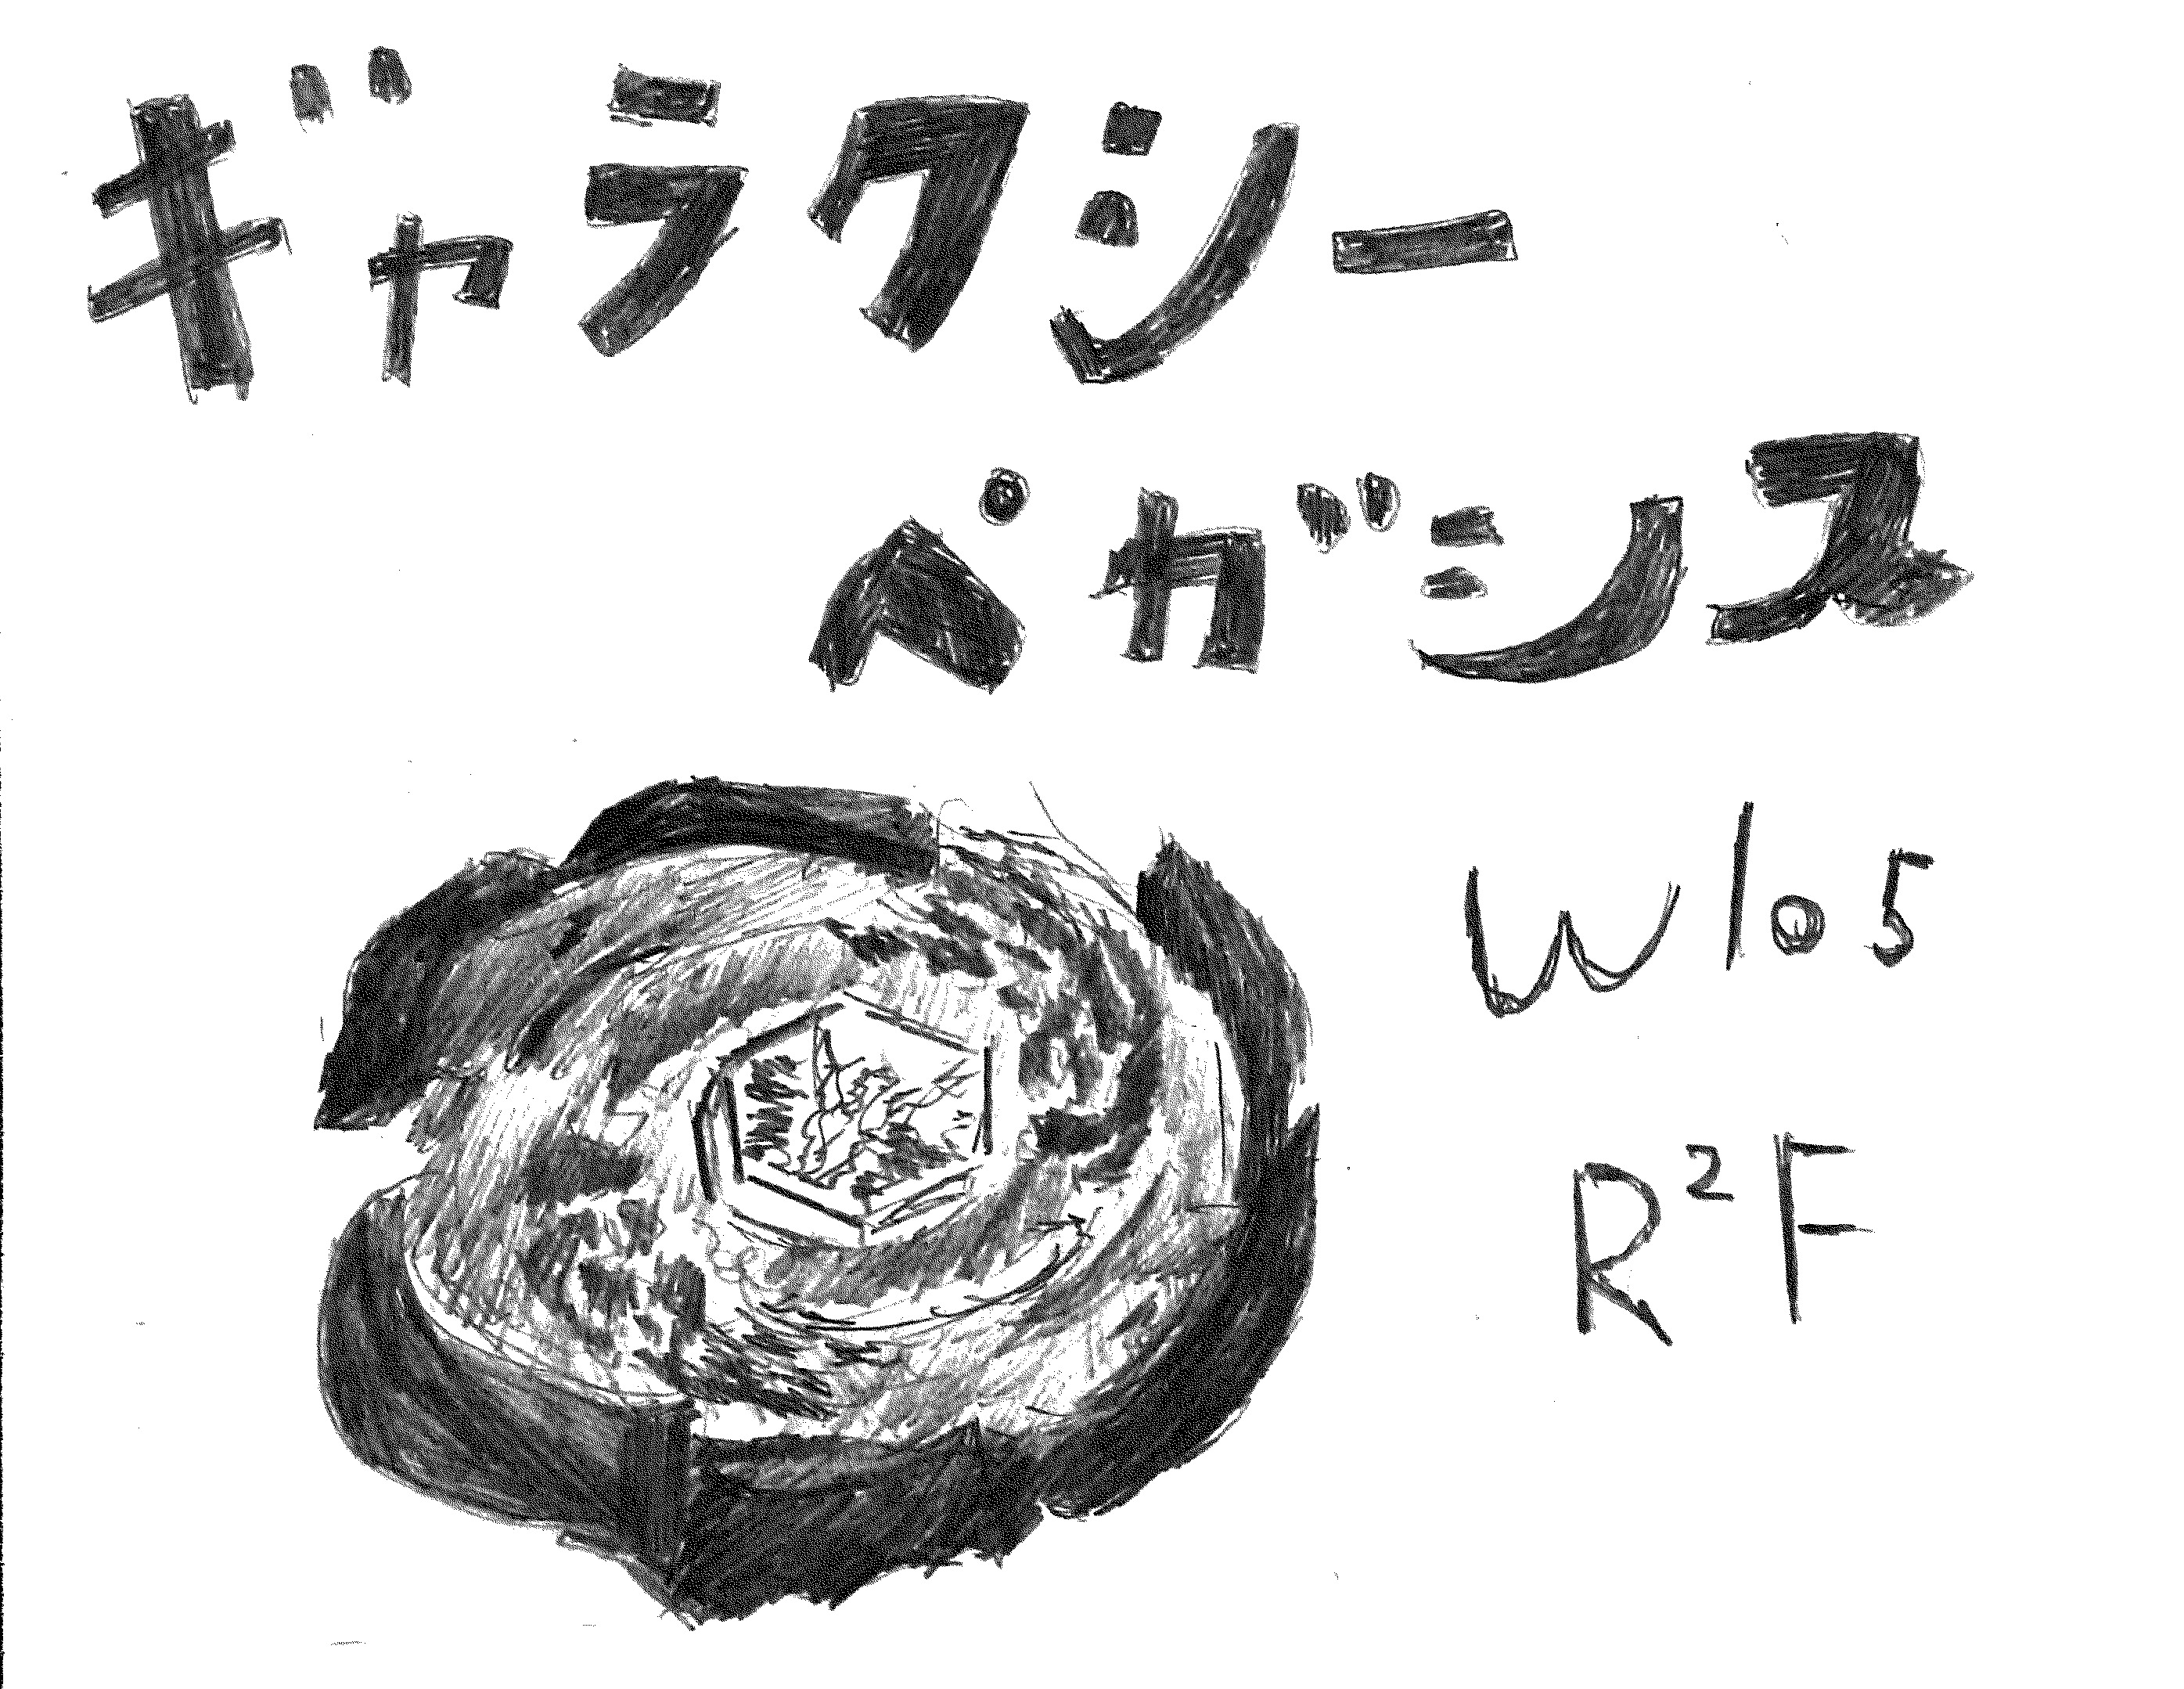 ギャラクシー
ペガシス
W105
R²F